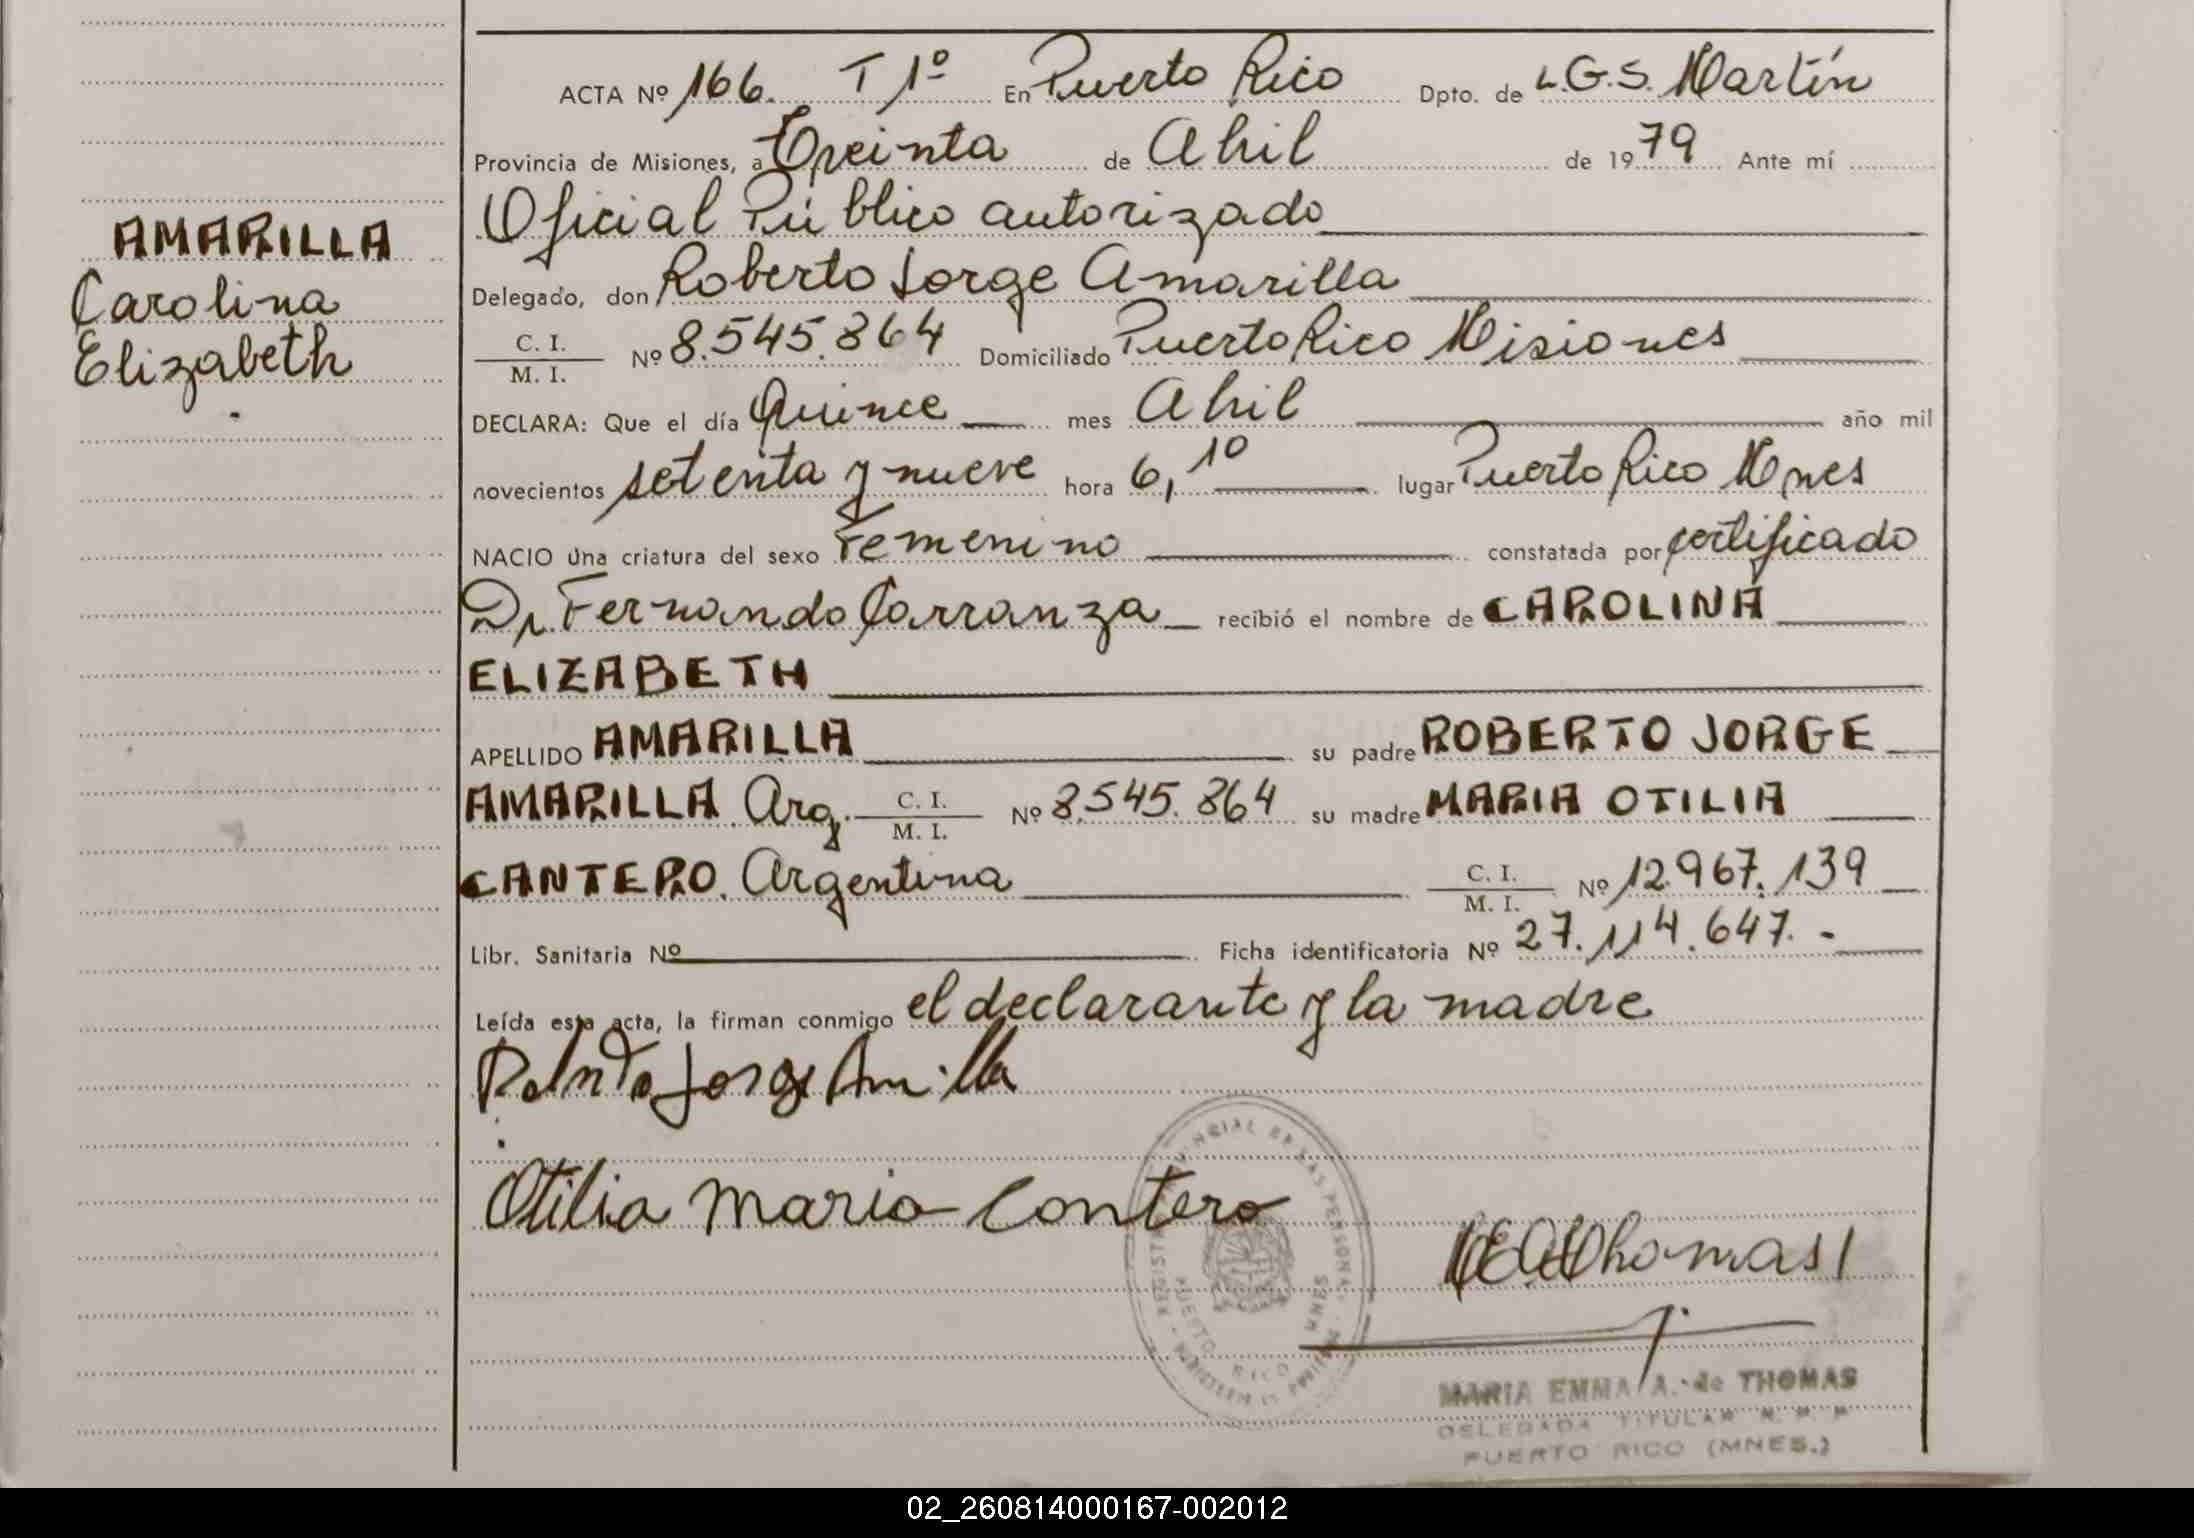 ACTA Nº 166. T 1º En Puerto Rico Dpto. de L.G.S. Martín
Provincia de Misiones, a Treinta de Abril de 1979 Ante mí
Oficial Público autorizado
AMARILLA
Delegado, don Roberto Jorge Amarilla
Carolina
C. I. / M. I. Nº 8.545.864 Domiciliado Puerto Rico Misiones
Elizabeth
DECLARA: Que el día Quince mes Abril año mil
novecientos setenta y nueve hora 6,10 lugar Puerto Rico Mnes
NACIO una criatura del sexo Femenino constatada por certificado
Dr. Fernando Carranza recibió el nombre de CAROLINA
ELIZABETH
APELLIDO AMARILLA su padre ROBERTO JORGE
AMARILLA Arg. C. I. / M. I. Nº 8.545.864 su madre MARIA OTILIA
CANTERO. Argentina C. I. / M. I. Nº 12.967.139
Libr. Sanitaria Nº Ficha identificatoria Nº 27.114.647.-
Leída esta acta, la firman conmigo el declarante y la madre
Roberto Jorge Amarilla
Otilia Maria Cantero
Thomas
MARIA EMMA A. de THOMAS
DELEGADA TITULAR R. P. P.
PUERTO RICO (MNES.)
PUERTO RICO MNES
02_260814000167-002012